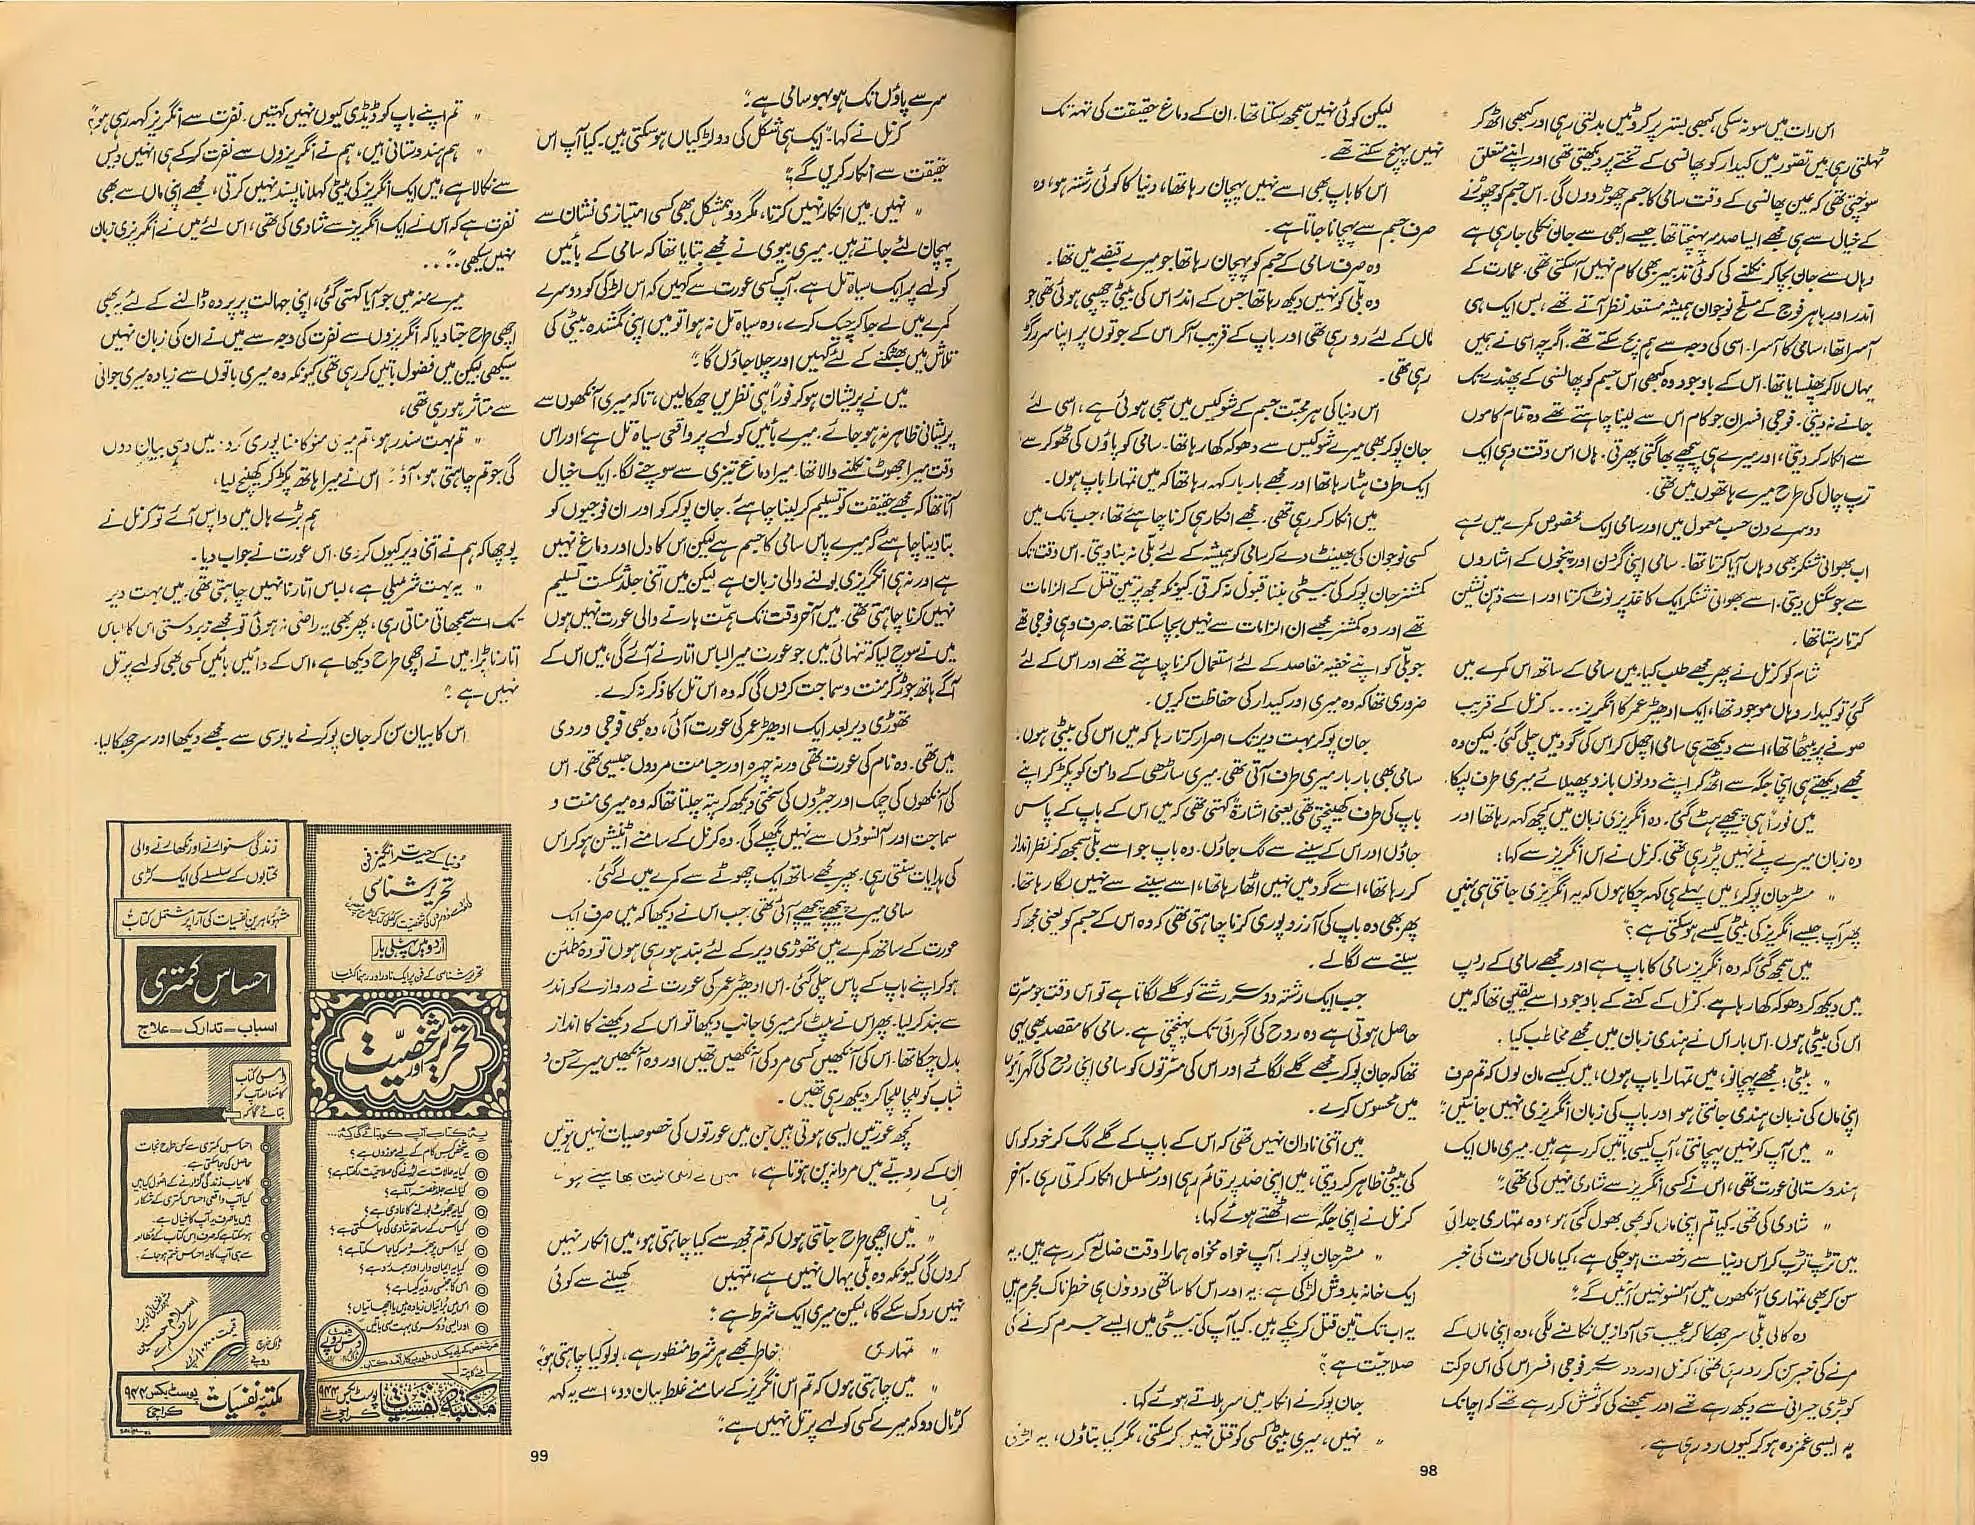 اس رات میں سو نہ سکی، کبھی بستر پر کروٹیں بدلتی رہی اور کبھی اٹھ کر
ٹہلتی رہی میں تصور میں کیدار کو پھانسی کے تختے پر دیکھتی تھی اور اپنے متعلق
سوچتی تھی کہ عین پھانسی کے وقت سامی کا جسم چھوڑ دوں گی۔ اس جسم کو چھوڑنے
کے خیال سے ہی مجھے ایسا صدمہ پہنچتا تھا جیسے ابھی سے جان نکلی جا رہی ہے
وہاں سے جان بچا کر نکلنے کی کوئی تدبیر بھی کام نہیں آ سکتی تھی۔ عمارت کے
اندر اور باہر فوج کے مسلح نوجوان ہمیشہ مستعد نظر آتے تھے، بس ایک ہی
آسرا تھا، سامی کا آسرا۔ اسی کی وجہ سے ہم بچ سکتے تھے۔ اگرچہ اسی نے ہمیں
یہاں لا کر پھنسایا تھا۔ اس کے باوجود وہ کبھی اس جسم کو پھانسی کے پھندے تک
جانے نہ دیتی۔ فوجی افسران جو کام اس سے لینا چاہتے تھے وہ تمام کاموں
سے انکار کر دیتی، اور میرے ہی پیچھے بھاگتی پھرتی۔ ہاں اس وقت وہی ایک
ترپ چال کی طرح میرے ہاتھوں میں تھی۔
دوسرے دن حسب معمول میں اور سامی ایک مخصوص کمرے میں رہے
اب بھوانی شنکر بھی وہاں آیا کرتا تھا۔ سامی اپنی گردن اور پنجوں کے اشاروں
سے جو سگنل دیتی۔ اسے بھوانی شنکر ایک کاغذ پر نوٹ کرتا اور اسے ذہن نشین
کرتا رہتا تھا۔
شام کو کرنل نے پھر مجھے طلب کیا، میں سامی کے ساتھ اس کمرے میں
گئی تو کیدار وہاں موجود تھا، ایک ادھیڑ عمر کا انگریز.... کرنل کے قریب
صوفے پر بیٹھا تھا، اسے دیکھتے ہی سامی اچھل کر اس کی گود میں چلی گئی۔ لیکن وہ
مجھے دیکھتے ہی اپنی جگہ سے اٹھ کر اپنے دونوں بازو پھیلائے میری طرف لپکا
میں فوراً ہی پیچھے ہٹ گئی۔ وہ انگریزی زبان میں کچھ کہہ رہا تھا اور
وہ زبان میرے پلے نہیں پڑ رہی تھی۔ کرنل نے اس انگریز سے کہا:
"مسٹر جان پوکر، میں پہلے ہی کہہ چکا ہوں کہ یہ انگریزی جانتی ہی نہیں
پھر آپ جیسے انگریز کی بیٹی کیسے ہو سکتی ہے؟"
میں سمجھ گئی کہ وہ انگریز سامی کا باپ ہے اور مجھے سامی کے روپ
میں دیکھ کر دھوکہ کھا رہا ہے۔ کرنل کے کہنے کے باوجود اسے یقین تھا کہ میں
اس کی بیٹی ہوں۔ اس بار اس نے ہندی زبان میں مجھے مخاطب کیا۔
"بیٹی! مجھے پہچانو، میں تمہارا باپ ہوں، میں کیسے مان لوں کہ تم صرف
اپنی ماں کی زبان ہندی جانتی ہو اور باپ کی زبان انگریزی نہیں جانتیں"
"میں آپ کو نہیں پہچانتی، آپ کیسی باتیں کر رہے ہیں۔ میری ماں ایک
ہندوستانی عورت تھی، اس نے کسی انگریز سے شادی نہیں کی تھی"
"شادی کی تھی۔ کیا تم اپنی ماں کو بھی بھول گئی ہو، وہ تمہاری جدائی
میں تڑپ تڑپ کر اس دنیا سے رخصت ہو چکی ہے، کیا ماں کی موت کی خبر
سن کر بھی تمہاری آنکھوں میں آنسو نہیں آئیں گے"
وہ کالی بلی سر جھکا کر عجیب سی آوازیں نکالنے لگی، وہ اپنی ماں کے
مرنے کی خبر سن کر رو رہی تھی، کرنل اور دوسرے فوجی افسر اس کی اس حرکت
کو بڑی حیرانی سے دیکھ رہے تھے اور سمجھنے کی کوشش کر رہے تھے کہ اچانک
یہ ایسی غمزدہ ہو کر کیوں رو رہی ہے۔
لیکن کوئی نہیں سمجھ سکتا تھا۔ ان کے دماغ حقیقت کی تہہ تک
نہیں پہنچ سکتے تھے۔
اس کا باپ بھی اسے نہیں پہچان رہا تھا، دنیا کا کوئی رشتہ ہو، وہ
صرف جسم سے پہچانا جاتا ہے۔
وہ صرف سامی کے جسم کو پہچان رہا تھا جو میرے قبضے میں تھا۔
وہ بلی کو نہیں دیکھ رہا تھا جس کے اندر اس کی بیٹی چھپی ہوئی تھی جو
ماں کے لئے رو رہی تھی اور باپ کے قریب آ کر اس کے جوتوں پر اپنا سر رگڑ
رہی تھی۔
اس دنیا کی ہر محبت جسم کے شوکیس میں سجی ہوئی ہے، اسی لئے
جان پوکر بھی میرے شوکیس سے دھوکہ کھا رہا تھا۔ سامی کو پاؤں کی ٹھوکر سے
ایک طرف ہٹا رہا تھا اور مجھے بار بار کہہ رہا تھا کہ میں تمہارا باپ ہوں۔
میں انکار کر رہی تھی۔ مجھے انکار ہی کرنا چاہئے تھا، جب تک میں
کسی نوجوان کی بھینٹ دے کر سامی کو ہمیشہ کے لئے بلی نہ بنا دیتی۔ اس وقت تک
کمشنر جان پوکر کی بیٹی بننا قبول نہ کرتی۔ کیونکہ مجھ پر تین قتل کے الزامات
تھے اور وہ کمشنر مجھے ان الزامات سے نہیں بچا سکتا تھا۔ صرف وہی فوجی تھے
جو بلی کو اپنے خفیہ مقاصد کے لئے استعمال کرنا چاہتے تھے اور اس کے لئے
ضروری تھا کہ وہ میری اور کیدار کی حفاظت کریں۔
جان پوکر بہت دیر تک اصرار کرتا رہا کہ میں اس کی بیٹی ہوں۔
سامی بھی بار بار میری طرف آتی تھی۔ میری ساڑھی کے دامن کو پکڑ کر اپنے
باپ کی طرف کھینچتی تھی یعنی اشارۃً کہتی تھی کہ میں اس کے باپ کے پاس
جاؤں اور اس کے سینے سے لگ جاؤں۔ وہ باپ جو اسے بلی سمجھ کر نظر انداز
کر رہا تھا، اسے گود میں نہیں اٹھا رہا تھا، اسے سینے سے نہیں لگا رہا تھا۔
پھر بھی وہ باپ کی آرزو پوری کرنا چاہتی تھی کہ وہ اس کے جسم کو یعنی مجھ کو
سینے سے لگا لے۔
جب ایک رشتہ دوسرے رشتے کو گلے لگاتا ہے تو اس وقت جو مسرت
حاصل ہوتی ہے وہ روح کی گہرائی تک پہنچتی ہے۔ سامی کا مقصد بھی یہی
تھا کہ جان پوکر مجھے گلے لگائے اور اس کی مسرتوں کو سامی اپنی روح کی گہرائیوں
میں محسوس کرے۔
میں اتنی نادان نہیں تھی کہ اس کے باپ کے گلے لگ کر خود کو اس
کی بیٹی ظاہر کر دیتی، میں اپنی ضد پر قائم رہی اور مسلسل انکار کرتی رہی۔ آخر
کرنل نے اپنی جگہ سے اٹھتے ہوئے کہا:
"مسٹر جان پوکر! آپ خواہ مخواہ ہمارا وقت ضائع کر رہے ہیں۔ یہ
ایک خانہ بدوش لڑکی ہے۔ یہ اور اس کا ساتھی دونوں ہی خطرناک مجرم ہیں
یہ اب تک تین قتل کر چکے ہیں۔ کیا آپ کی بیٹی میں ایسے جرم کرنے کی
صلاحیت ہے؟"
جان پوکر نے انکار میں سر ہلاتے ہوئے کہا۔
"نہیں، میری بیٹی کسی کو قتل نہیں کر سکتی، مگر کیا بتاؤں، یہ لڑکی
98
سر سے پاؤں تک ہوبہو سامی ہے"
کرنل نے کہا "ایک ہی شکل کی دو لڑکیاں ہو سکتی ہیں۔ کیا آپ اس
حقیقت سے انکار کریں گے؟"
"نہیں۔ میں انکار نہیں کرتا، مگر دو ہمشکل بھی کسی امتیازی نشان سے
پہچان لئے جاتے ہیں۔ میری بیوی نے مجھے بتایا تھا کہ سامی کے بائیں
کولہے پر ایک سیاہ تل ہے۔ آپ کسی عورت سے کہیں کہ اس لڑکی کو دوسرے
کمرے میں لے جا کر چیک کرے، وہ سیاہ تل نہ ہوا تو میں اپنی گمشدہ بیٹی کی
تلاش میں بھٹکنے کے لئے کہیں اور چلا جاؤں گا"
میں نے پریشان ہو کر فوراً ہی نظریں جھکا لیں، تاکہ میری آنکھوں سے
پریشانی ظاہر نہ ہو جائے۔ میرے بائیں کولہے پر واقعی سیاہ تل ہے، اور اس
وقت میرا جھوٹ نکلنے والا تھا۔ میرا دماغ تیزی سے سوچنے لگا۔ ایک خیال
آتا تھا کہ مجھے حقیقت کو تسلیم کر لینا چاہئے۔ جان پوکر کو اور ان فوجیوں کو
بتا دینا چاہئے کہ میرے پاس سامی کا جسم ہے لیکن اس کا دل اور دماغ نہیں
ہے اور نہ ہی انگریزی بولنے والی زبان ہے لیکن میں اتنی جلد شکست تسلیم
نہیں کرنا چاہتی تھی۔ میں آخر وقت تک ہمت ہارنے والی عورت نہیں ہوں
میں نے سوچ لیا کہ تنہائی میں جو عورت میرا لباس اتارنے آئے گی، میں اس کے
آگے ہاتھ جوڑ کر منت و سماجت کروں گی کہ وہ اس تل کا ذکر نہ کرے۔
تھوڑی دیر بعد ایک ادھیڑ عمر کی عورت آئی، وہ بھی فوجی وردی
میں تھی۔ وہ نام کی عورت تھی ورنہ چہرہ اور جسامت مردوں جیسی تھی۔ اس
کی آنکھوں کی چمک اور جبڑوں کی سختی دیکھ کر پتہ چلتا تھا کہ وہ میری منت و
سماجت اور آنسوؤں سے نہیں پگھلے گی۔ وہ کرنل کے سامنے اٹینشن ہو کر اس
کی ہدایات سنتی رہی۔ پھر مجھے ساتھ ایک چھوٹے سے کمرے میں لے گئی۔
سامی میرے پیچھے پیچھے آئی تھی جب اس نے دیکھا کہ میں صرف ایک
عورت کے ساتھ کمرے میں تھوڑی دیر کے لئے بند ہو رہی ہوں تو وہ مطمئن
ہو کر اپنے باپ کے پاس چلی گئی۔ اس ادھیڑ عمر کی عورت نے دروازے کو اندر
سے بند کر لیا۔ پھر اس نے پلٹ کر میری جانب دیکھا تو اس کے دیکھنے کا انداز
بدل چکا تھا۔ اس کی آنکھیں کسی مرد کی آنکھیں تھیں اور وہ آنکھیں میرے حسن و
شباب کو للچا للچا کر دیکھ رہی تھیں۔
کچھ عورتیں ایسی ہوتی ہیں جن میں عورتوں کی خصوصیات نہیں ہوتیں
ان کے رویے میں مردانہ پن ہوتا ہے،
"میں اچھی طرح جانتی ہوں کہ تم مجھ سے کیا چاہتی ہو، میں انکار نہیں
کروں گی کیونکہ وہ بلی یہاں نہیں ہے، تمہیں کھیلنے سے کوئی
نہیں روک سکے گا، لیکن میری ایک شرط ہے:
"تمہاری خاطر مجھے ہر شرط منظور ہے، بولو کیا چاہتی ہو؟"
"میں چاہتی ہوں کہ تم اس انگریز کے سامنے غلط بیان دو، اسے یہ کہہ
کر ٹال دو کہ میرے کسی کولہے پر تل نہیں ہے"
99
"تم اپنے باپ کو ڈیڈی کیوں نہیں کہتیں۔ نفرت سے انگریز کہہ رہی ہو؟"
"ہم ہندوستانی ہیں، ہم نے انگریزوں سے نفرت کر کے ہی انہیں دیس
سے نکالا ہے، میں ایک انگریز کی بیٹی کہلانا پسند نہیں کرتی، مجھے اپنی ماں سے بھی
نفرت ہے کہ اس نے ایک انگریز سے شادی کی تھی، اس لئے میں نے انگریزی زبان
نہیں سیکھی"....
میرے منہ میں جو آیا کہتی گئی، اپنی جہالت پر پردہ ڈالنے کے لئے یہ بھی
اچھی طرح جتا دیا کہ انگریزوں سے نفرت کی وجہ سے میں نے ان کی زبان نہیں
سیکھی لیکن میں فضول باتیں کر رہی تھی کیونکہ وہ میری باتوں سے زیادہ میری جوانی
سے متاثر ہو رہی تھی،
"تم بہت سندر ہو، تم میری منوکامنا پوری کر دو میں وہی بیان دوں
گی جو تم چاہتی ہو، آؤ" اس نے میرا ہاتھ پکڑ کر کھینچ لیا،
ہم بڑے ہال میں واپس آئے تو کرنل نے
پوچھا کہ ہم نے اتنی دیر کیوں کر دی۔ اس عورت نے جواب دیا۔
"یہ بہت شرمیلی ہے، لباس اتارنا نہیں چاہتی تھی۔ میں بہت دیر
تک اسے سمجھاتی مناتی رہی، پھر بھی یہ راضی نہ ہوئی تو مجھے زبردستی اس کا لباس
اتارنا پڑا۔ میں نے اچھی طرح دیکھا ہے، اس کے دائیں بائیں کسی بھی کولہے پر تل
نہیں ہے"
اس کا بیان سن کر جان پوکر نے مایوسی سے مجھے دیکھا اور سر جھکا لیا۔
دنیا کے حیرت انگیز فن
تحریر شناسی
اردو میں پہلی بار
تحریر شناسی کے فن پر ایک نادر اور رہنما کتاب
تحریر اور شخصیت
یہ کتاب آپ کو بتائے گی کہ...
یہ شخص کس کام کے لیے موزوں ہے؟
کیا یہ حالات سے لڑنے کی صلاحیت رکھتا ہے؟
کیا اسے جلد غصہ آتا ہے؟
کیا یہ جھوٹ بولنے کا عادی ہے؟
کیا اس کے ساتھ شادی کی جا سکتی ہے؟
کیا اس پر بھروسہ کیا جا سکتا ہے؟
کیا یہ ایمان دار اور ہمدرد ہے؟
اس کا جنسی رویہ کیا ہے؟
اس میں برائیاں زیادہ ہیں یا اچھائیاں؟
اور ایسی دوسری بہت سی باتیں
مکتبہ نفسیات
پوسٹ بکس ۹۴۴ کراچی
زندگی سنوارنے اور نکھارنے والی
کتابوں کے سلسلے کی ایک کڑی
مشہور ماہرین نفسیات کی آرا پر مشتمل کتاب
احساسِ کمتری
اسباب – تدارک – علاج
اس کتاب
کا مطالعہ آپ کو
بتائے گا کہ
احساس کمتری سے کس طرح نجات
حاصل کی جا سکتی ہے۔
کامیاب زندگی گزارنے کے اصول کیا ہیں
کیا آپ واقعی احساس کمتری کے شکار
ہیں یا صرف یہ آپ کا خیال ہے۔
ہو سکتا ہے کہ صرف اس کتاب کے مطالعہ
سے ہی آپ کا یہ احساس ختم ہو جائے۔
مکتبہ نفسیات
پوسٹ بکس ۹۴۴
کراچی